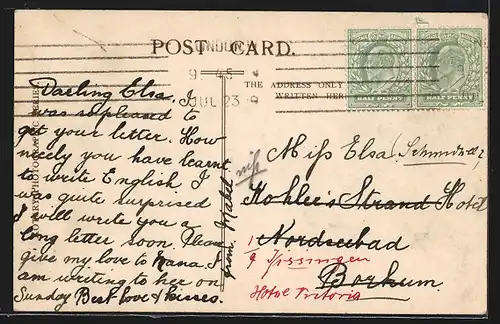 POST CARD.
LONDON
9 45
JUL 23 9
THE ADDRESS ONLY
WRITTEN HERE
HALF PENNY
HALF PENNY
Darling Elsa. I
was so pleased to
get your letter. How
nicely you have learnt
to write English. I
was quite surprised
I will write you a
long letter soon. Please
give my love to Nana. I
am writing to her on
Sunday Best love & kisses.
from
Miss Elsa
Strand Hotel
Nordseebad
Borkum
Kissingen
Hotel Victoria